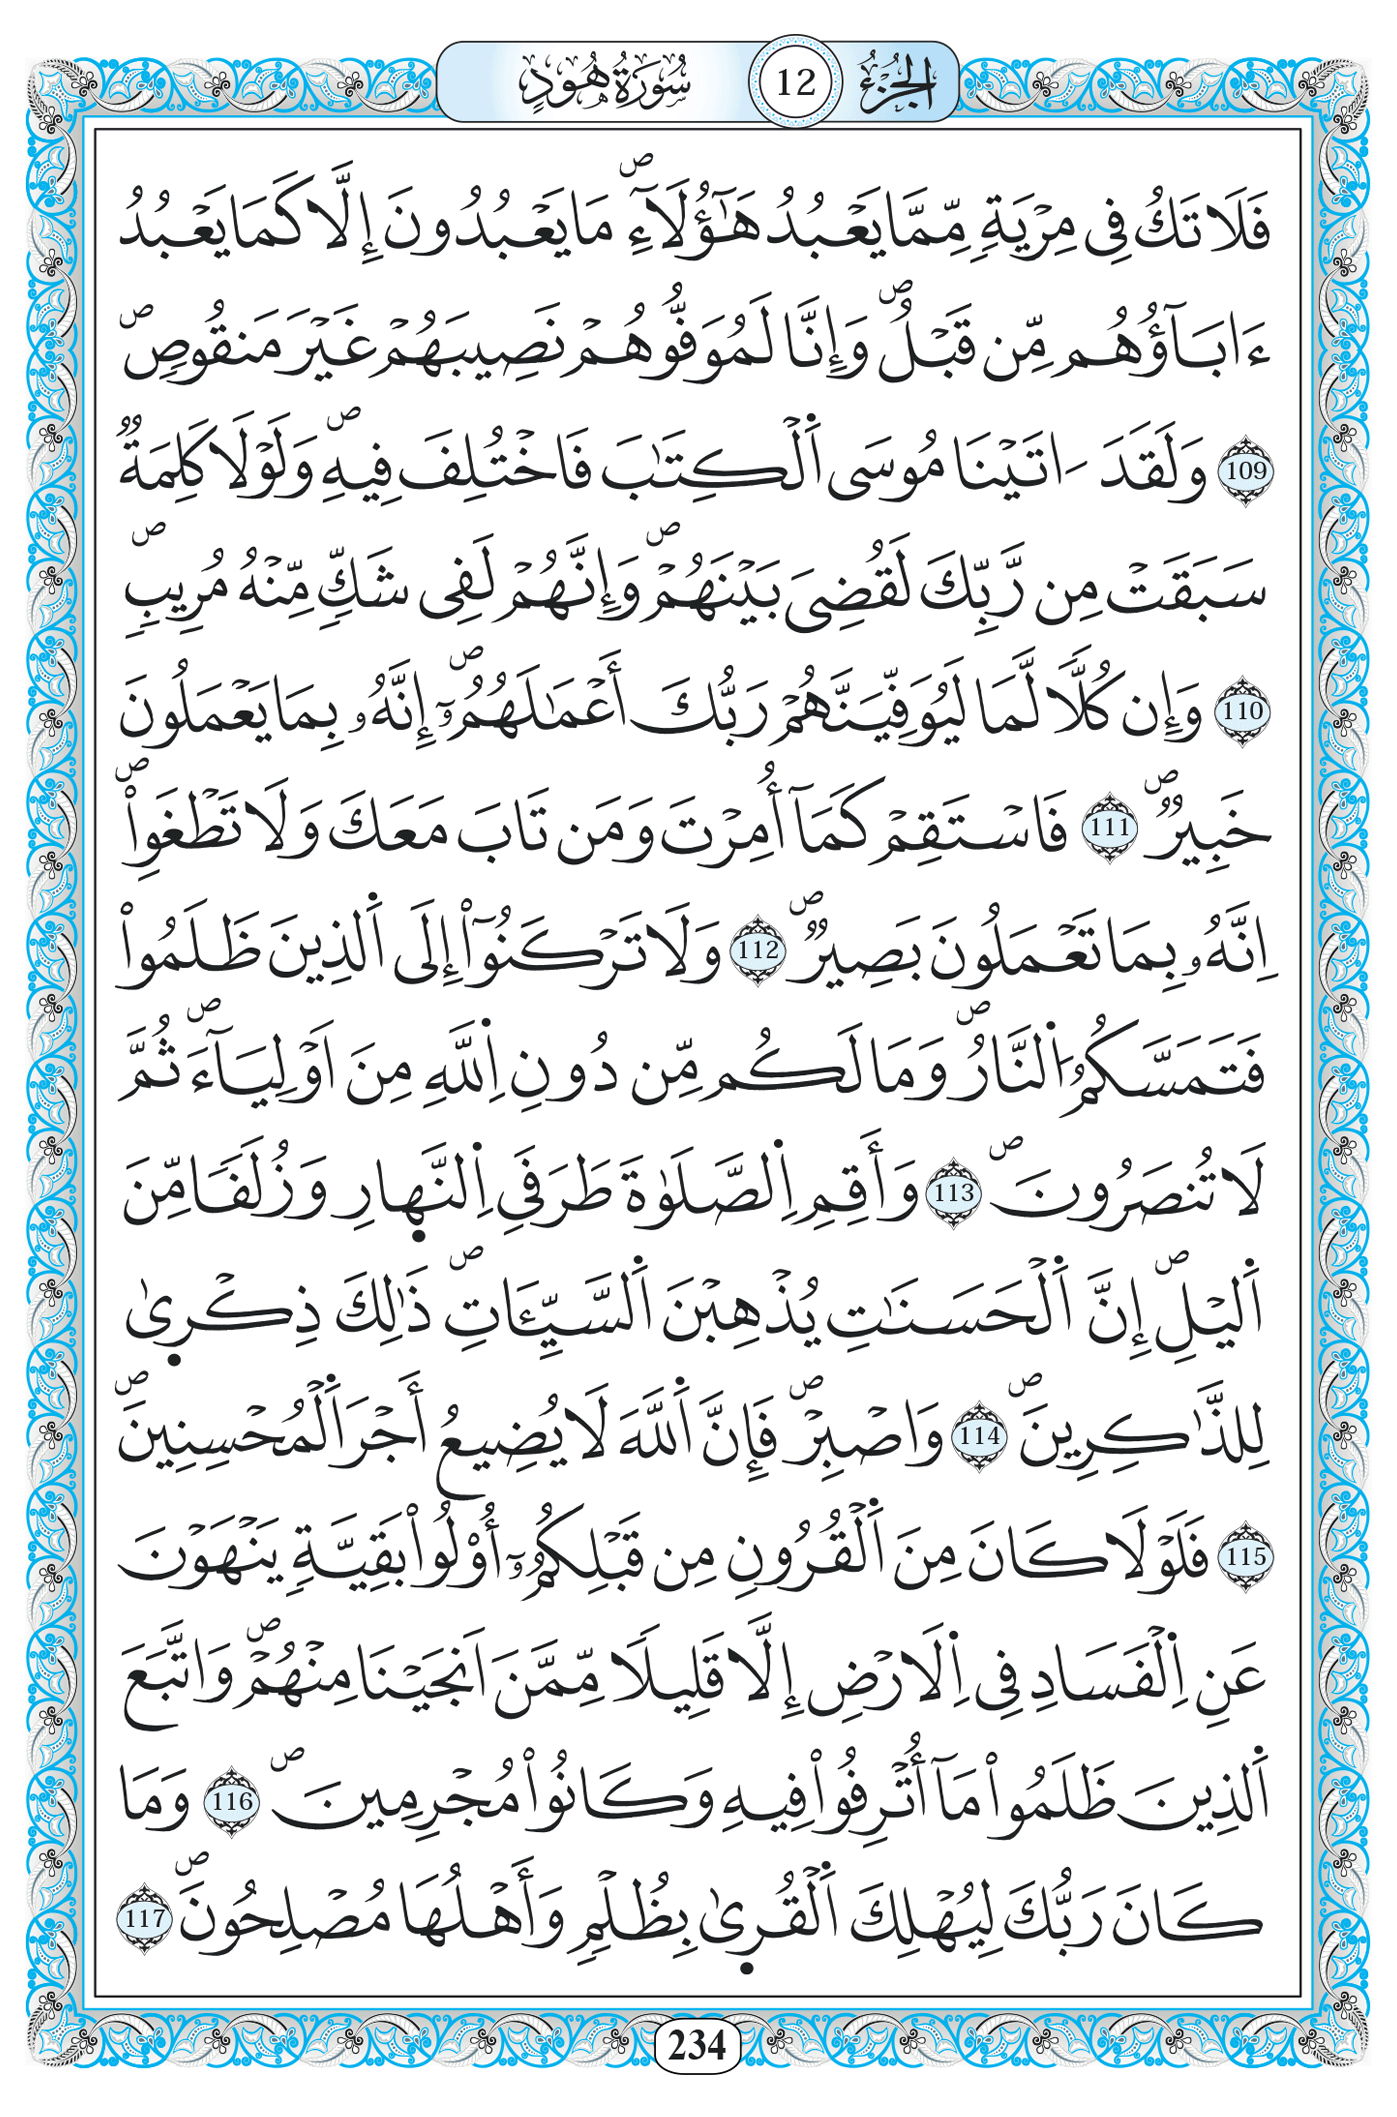 الجزء 12 سورة هود
فَلَا تَكُ فِى مِرْيَةٍ مِّمَّا يَعْبُدُ هَٰٓؤُلَآءِ ۖ مَا يَعْبُدُونَ إِلَّا كَمَا يَعْبُدُ
ءَابَآؤُهُم مِّن قَبْلُ ۖ وَإِنَّا لَمُوَفُّوهُمْ نَصِيبَهُمْ غَيْرَ مَنقُوصٍ ۖ
109 وَلَقَدَ ـاتَيْنَا مُوسَى اَ۬لْكِتَٰبَ فَاخْتُلِفَ فِيهِ ۖ وَلَوْلَا كَلِمَةٌ
سَبَقَتْ مِن رَّبِّكَ لَقُضِىَ بَيْنَهُمْ ۖ وَإِنَّهُمْ لَفِى شَكٍّ مِّنْهُ مُرِيبٍ ۖ
110 وَإِن كُلًّا لَّمَا لَيُوَفِّيَنَّهُمْ رَبُّكَ أَعْمَٰلَهُمُۥٓ ۖ إِنَّهُۥ بِمَا يَعْمَلُونَ
خَبِيرٌ ۖ 111 فَاسْتَقِمْ كَمَآ أُمِرْتَ وَمَن تَابَ مَعَكَ وَلَا تَطْغَوِاْ ۖ
اِنَّهُۥ بِمَا تَعْمَلُونَ بَصِيرٌ ۖ 112 وَلَا تَرْكَنُوٓاْ إِلَى اَ۬لذِينَ ظَلَمُواْ
فَتَمَسَّكُمُ اُ۬لنَّارُ ۖ وَمَا لَكُم مِّن دُونِ اِ۬للَّهِ مِنَ اَوْلِيَآءَ ۖ ثُمَّ
لَا تُنصَرُونَ ۖ 113 وَأَقِمِ اِ۬لصَّلَوٰةَ طَرَفَىِ اِ۬لنَّهارِ وَزُلَفًا مِّنَ
اَ۬ليْلِ ۖ إِنَّ اَ۬لْحَسَنَٰتِ يُذْهِبْنَ اَ۬لسَّيِّـَٔاتِ ۖ ذَٰلِكَ ذِكْرىٰ
لِلذَّٰكِرِينَ ۖ 114 وَاصْبِرْ ۖ فَإِنَّ اَ۬للَّهَ لَا يُضِيعُ أَجْرَ اَ۬لْمُحْسِنِينَ ۖ
115 فَلَوْلَا كَانَ مِنَ اَ۬لْقُرُونِ مِن قَبْلِكُمُۥٓ أُوْلُواْ بَقِيَّةٍ يَنْهَوْنَ
عَنِ اِ۬لْفَسَادِ فِى اِ۬لَارْضِ إِلَّا قَلِيلًا مِّمَّنَ اَنجَيْنَا مِنْهُمْ ۖ وَاتَّبَعَ
اَ۬لذِينَ ظَلَمُواْ مَآ أُتْرِفُواْ فِيهِ وَكَانُواْ مُجْرِمِينَ ۖ 116 وَمَا
كَانَ رَبُّكَ لِيُهْلِكَ اَ۬لْقُرىٰ بِظُلْمٍ وَأَهْلُهَا مُصْلِحُونَ ۖ 117
234